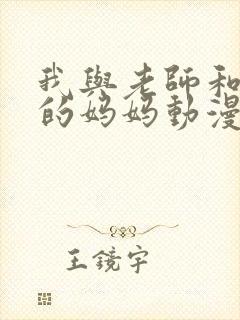 我與老師和
的媽媽動漫
王鏡宇